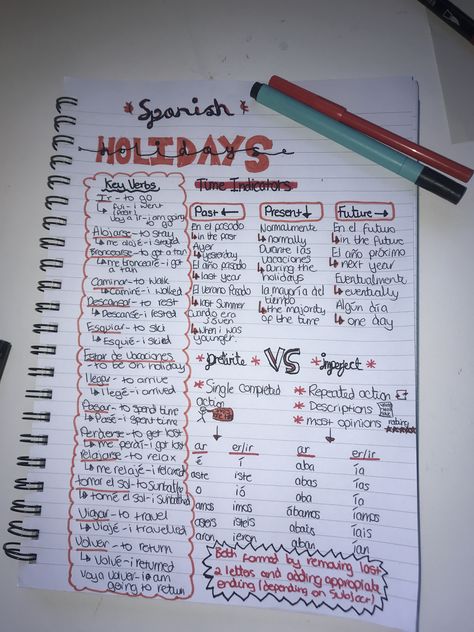 *Spanish*
HOLIDAYS
holidays
Key Verbs
Ir - to go
↳ fui - i went
(past)
Voy a ir - i am going
to go
Alojarse - to stay
↳ me alojé - i stayed
Broncearse - to get a tan
↳ me broncearé - i got
a tan
Caminar - to walk
↳ Caminé - i walked
Descansar - to rest
↳ Descansé - i rested
Esquiar - to ski
↳ Esquié - i skied
Estar de vacaciones
- to be on holiday
llegar - to arrive
↳ llegué - i arrived
Pasar - to spend time
↳ Pasé - i spent time
Perderse - to get lost
↳ me perdí - i got lost
relajarse - to relax
↳ me relajé - i relaxed
tomar el sol - to sunbathe
↳ tomé el sol - i sunbathed
Viajar - to travel
↳ Viajé - i travelled
Volver - to return
↳ Volvé - i returned
Voy a volver - i am
going to return
Time Indicators
Past ←
En el pasado
↳ in the past
Ayer
↳ yesterday
El año pasado
↳ last year
El verano Pasado
↳ last summer
Cuando era
joven
↳ when i was
younger
Present ↓
Normalmente
↳ normally
Durante las
vacaciones
↳ During the
holidays
la mayoría del
tiempo
↳ the majority
of the time
Future →
En el futuro
↳ in the future
El año próximo
↳ next year
Eventualmente
↳ eventually
Algún día
↳ one day
* preterite * VS * imperfect *
* Single completed
action
↓
ar er/ir
é í
aste iste
ó ió
amos imos
asteis isteis
aron ieron
* Repeated action
* Descriptions
* most opinions
rating
↓
ar er/ir
aba ía
abas ías
aba ía
ábamos íamos
abais íais
aban ían
Both formed by removing last
2 letters and adding appropriate
ending (depending on subject)